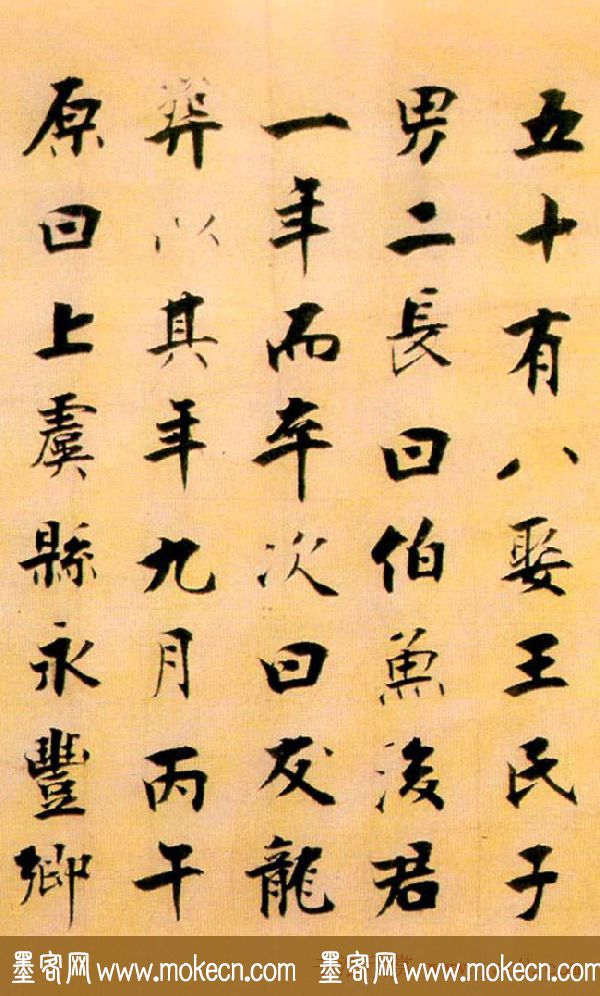 五十有八娶王民子
男二長曰伯魚後君
一年而卒次曰友龍
葬以其年九月丙午
原曰上虞縣永豐鄉
墨客网www.mokecn.com 墨客网www.mokecn.com